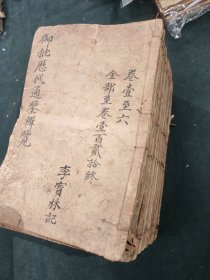 卷壹至六
全部至卷壹百貳拾終
御批歷代通鑒輯覽
李寶林記